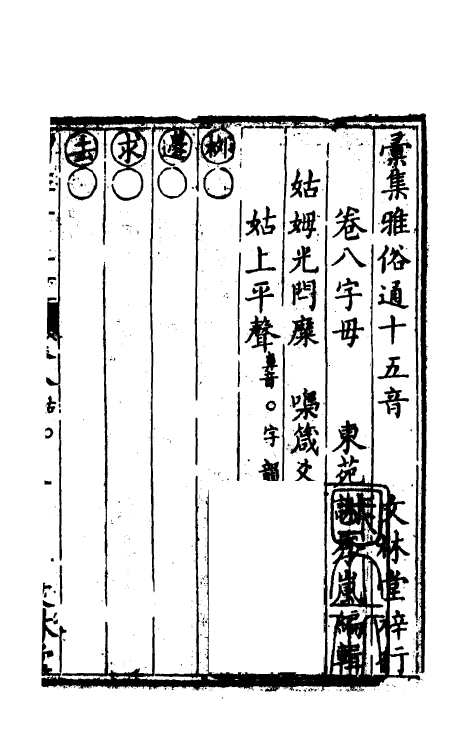 彙集雅俗通十五音 文林堂梓行
卷八字母 東苑謝秀嵐編輯
姑姆光閂糜 㗅箴爻
姑上平聲 鼻音○字韻
柳○
邊○
求○
去○